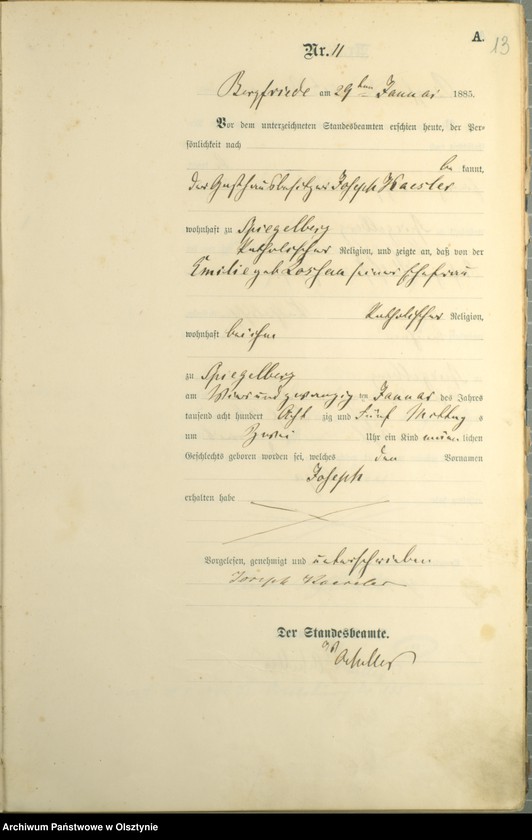 A.
13
Nr. 11
Bergfriede am 29ten Januar 1885.
Vor dem unterzeichneten Standesbeamten erschien heute, der Per-
sönlichkeit nach
be kannt,
der Gasthausbesitzer Joseph Kaesler
wohnhaft zu Spiegelberg
katholischer Religion, und zeigte an, daß von der
Emilie geb Loschau seiner Ehefrau
katholischer Religion,
wohnhaft bei ihm
zu Spiegelberg
am Vierundzwanzig ten Januar des Jahres
tausend acht hundert Acht zig und Fünf Mittag s
um Zwei Uhr ein Kind männ lichen
Geschlechts geboren worden sei, welches den Vornamen
Joseph
erhalten habe
Vorgelesen, genehmigt und unterschrieben
Joseph Kaesler
Der Standesbeamte.
Archiwum Państwowe w Olsztynie